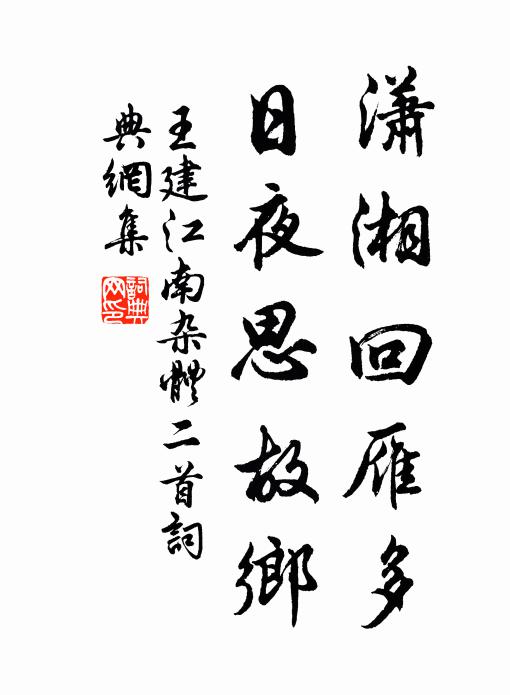 瀟湘回雁多
日夜思故鄉
王建江南杂體二首詞
典網集
詞典
网印